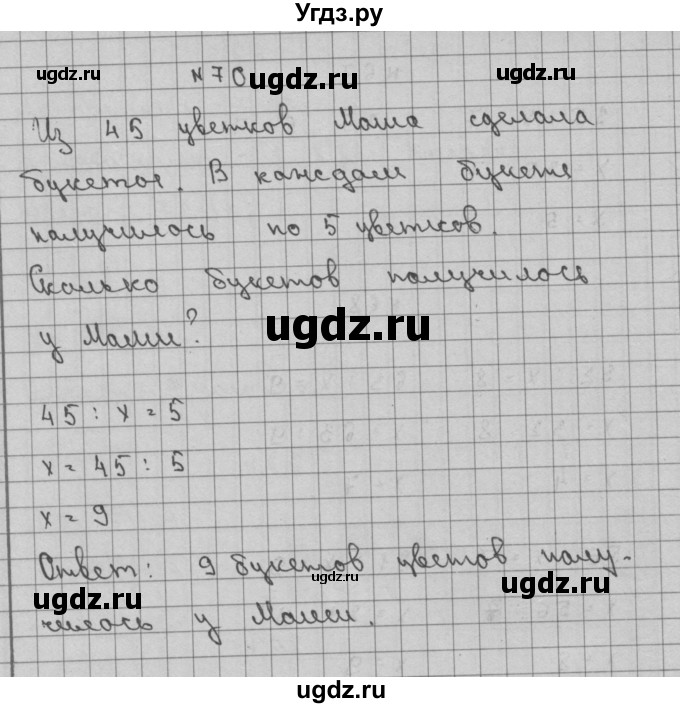 Угдз.ру
ugdz.ru ugdz.ru ugdz.ru
N 70
Из 45 цветков Маша сделала
букеты. В каждом букете
получилось по 5 цветков.
Сколько букетов получилось
ugdz.ru
у Маши?
45 : x = 5
x = 45 : 5
x = 9
Ответ: 9 букетов цветов полу-
ugdz.ru ugdz.ru ugdz.ru
чилось у Маши.
ugdz.ru